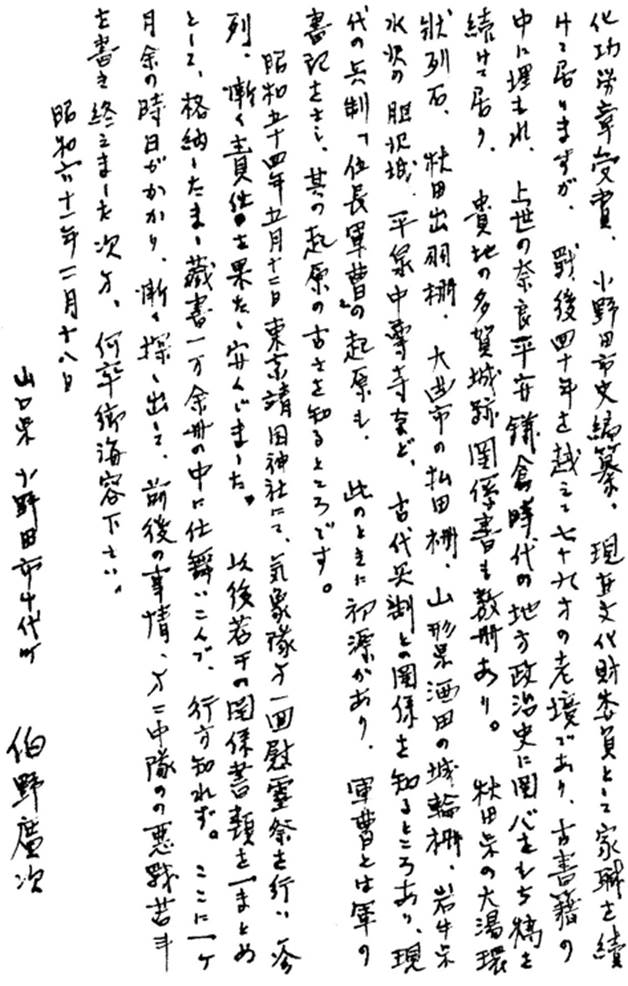 化功労章受賞、小野田市史編纂、現在文化財委員として家職を続
けて居りますが、戦後四十年を越えて七十九才の老境であり、古書籍の
中に埋もれ、上世の奈良平安鎌倉時代の地方政治史に関心をもち稿を
続けて居り、貴地の多賀城跡関係書も数冊あり。秋田県の大湯環
状列石、秋田出羽柵、大曲市の払田柵、山形県酒田の城輪柵、岩手県
水沢の胆沢城、平泉中尊寺など、古代兵制との関係を知るところあり、現
代の兵制「伍長軍曹」の起原も、此のときに初源があり、軍曹とは軍の
書記をさし、其の起原の古さを知るところです。
昭和五十四年五月十二日東京請田神社にて、気象隊才一回慰霊祭を行い参
列、漸く責任を果たし安んじました。以後若干の関係書類を一まとめ
として、格納したまゝ蔵書一万余冊の中に仕舞いこんで、行方知れず。ここに一ヶ
月余の時日がかかり、漸く探し出して、前後の事情、才二中隊のの悪戦苦斗
を書き終えました次才、何卒御海容下さい。
昭和六十一年二月十八日
山口県小野田市千代町
伯野廣次